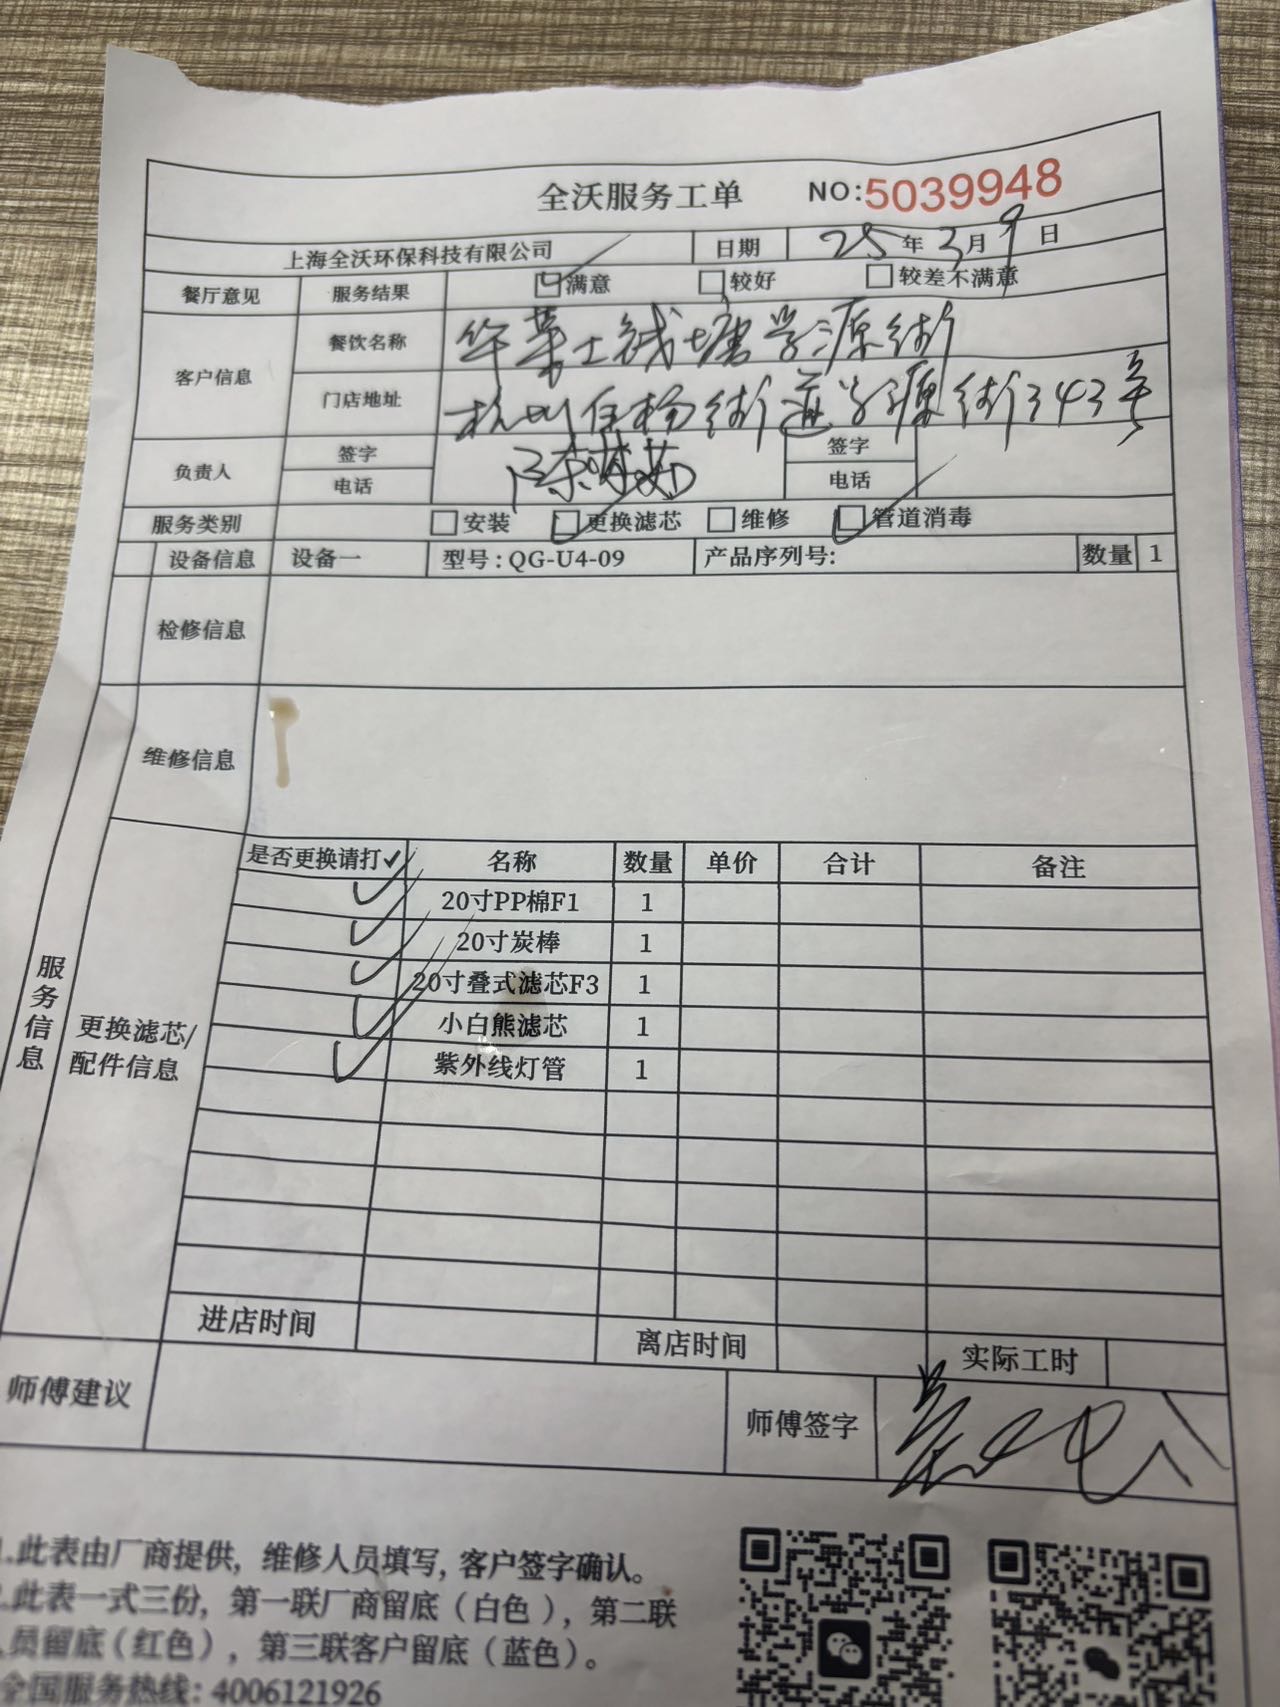 全沃服务工单 NO:5039948
上海全沃环保科技有限公司 日期 25年3月9日
餐厅意见 服务结果 满意 较好 较差不满意
客户信息 餐饮名称 华莱士钱塘学源街
门店地址 杭州白杨街道学源街343号
负责人 签字 签字
电话 电话
服务类别 安装 更换滤芯 维修 管道消毒
设备信息 设备一 型号:QG-U4-09 产品序列号: 数量 1
检修信息
维修信息
服务信息
更换滤芯/
配件信息
是否更换请打✓ 名称 数量 单价 合计 备注
✓ 20寸PP棉F1 1
✓ 20寸炭棒 1
✓ 20寸叠式滤芯F3 1
✓ 小白熊滤芯 1
✓ 紫外线灯管 1
进店时间 离店时间 实际工时
师傅建议 师傅签字
1.此表由厂商提供,维修人员填写,客户签字确认。
2.此表一式三份,第一联厂商留底(白色),第二联
员留底(红色),第三联客户留底(蓝色)。
全国服务热线:4006121926